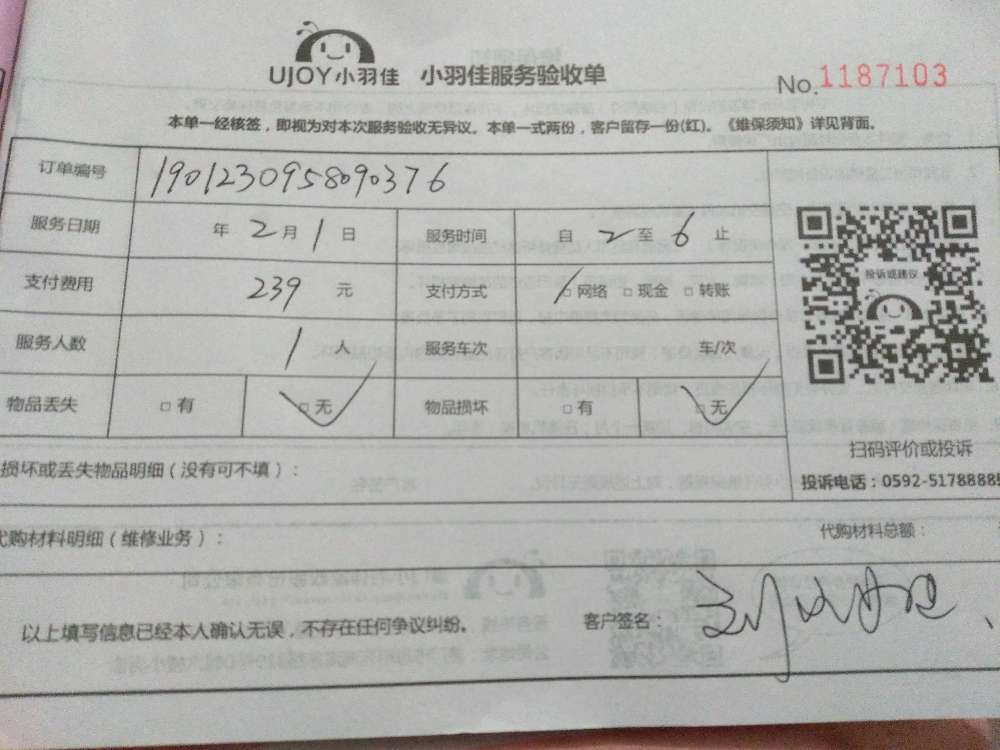 UJOY小羽佳 小羽佳服务验收单
No.1187103
本单一经核签，即视为对本次服务验收无异议。本单一式两份，客户留存一份(红)。《维保须知》详见背面。
订单编号 1901230958090376
服务日期 年 2 月 1 日 服务时间 自 2 至 6 止
投诉或建议
支付费用 239 元 支付方式 □网络 □现金 □转账
服务人数 1 人 服务车次 车/次
物品丢失 □有 □无 物品损坏 □有 □无
扫码评价或投诉
损坏或丢失物品明细（没有可不填）：
投诉电话：0592-5178888
代购材料明细（维修业务）： 代购材料总额：
以上填写信息已经本人确认无误，不存在任何争议纠纷。 客户签名：